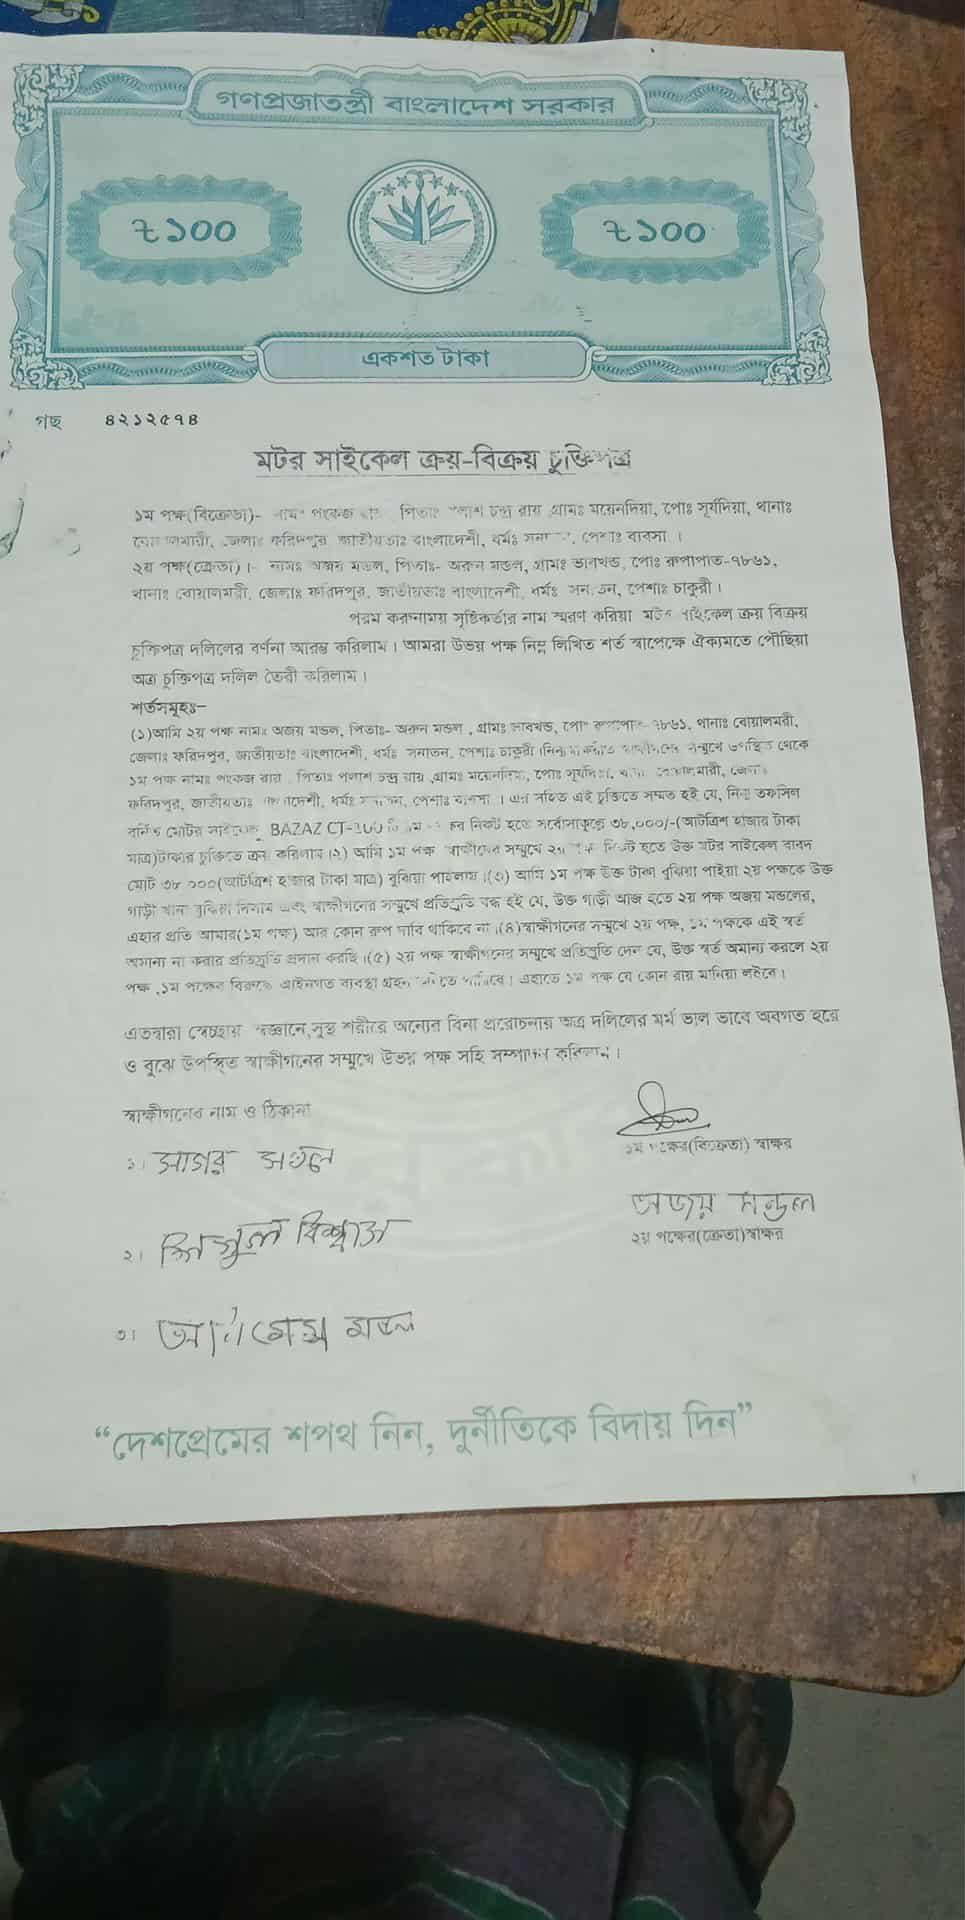 গণপ্রজাতন্ত্রী বাংলাদেশ সরকার
৳ ১০০ ৳ ১০০
একশত টাকা
গছ ৪২১২৫৭৪
মটর সাইকেল ক্রয়-বিক্রয় চুক্তিপত্র
১ম পক্ষ(বিক্রেতা)- নামঃ পংকজ পিতাঃ চন্দ্র রায় ,গ্রামঃ ময়েনদিয়া, পোঃ সূর্যদিয়া, থানাঃ
জেলাঃ ফরিদপুর, জাতীয়তাঃ বাংলাদেশী, ধর্মঃ পেশাঃ ব্যবসা ।
২য় পক্ষ(ক্রেতা) ।- নামঃ অজয় মন্ডল, পিতাঃ- অরুন মন্ডল, গ্রামঃ ভাবখন্ড, পোঃ রুপাপাত-৭৮৬১,
থানাঃ বোয়ালমরী, জেলাঃ ফরিদপুর, জাতীয়তাঃ বাংলাদেশী, ধর্মঃ পেশাঃ চাকুরী ।
পরম করুনাময় সৃষ্টিকর্তার নাম স্মরণ করিয়া ক্রয় বিক্রয়
চুক্তিপত্র দলিলের বর্ণনা আরম্ভ করিলাম । আমরা উভয় পক্ষ নিম্ন লিখিত শর্ত স্বাপেক্ষে ঐক্যমতে পৌছিয়া
অত্র চুক্তিপত্র দলিল তৈরী করিলাম ।
শর্তসমূহঃ–
(১)আমি ২য় পক্ষ নামঃ অজয় মন্ডল, পিতাঃ- অরুন মন্ডল , গ্রামঃ ভাবখন্ড, থানাঃ বোয়ালমরী,
জেলাঃ ফরিদপুর, জাতীয়তাঃ বাংলাদেশী, ধর্মঃ সনাতন, পেশাঃ চাকুরী । সম্মুখে উপস্থিত থেকে
১ম পক্ষ নামঃ পংকজ রায় পিতাঃ পলাশ চন্দ্র রায় ,গ্রামঃ ময়েনদিয়া, পোঃ সূর্যদিয়া, জেলাঃ
ফরিদপুর, জাতীয়তাঃ ধর্মঃ পেশাঃ ব্যবসা । এর সহিত এই চুক্তিতে সম্মত হই যে, নিম্ন তফসিল
বর্নিত মোটর BAZAZ CT-100 নিকট হতে সর্বোসাকুল্লে ৩৮,০০০/-(আটত্রিশ হাজার টাকা
মাত্র)টাকার চুক্তিতে ক্রয় করিলাম ।(২) আমি ১ম পক্ষ স্বাক্ষীদের সম্মুখে হতে উক্ত মটর সাইকেল বাবদ
মোট ৩৮ ০০০(আটত্রিশ হাজার টাকা মাত্র) বুঝিয়া পাইলাম ।(৩) আমি ১ম পক্ষ উক্ত টাকা বুঝিয়া পাইয়া ২য় পক্ষকে উক্ত
গাড়ী খানা বুঝিয়া দিলাম এবং স্বাক্ষীগনের সম্মুখে প্রতিশ্রুতি বদ্ধ হই যে, উক্ত গাড়ী আজ হতে ২য় পক্ষ অজয় মন্ডলের,
এহার প্রতি আমার(১ম পক্ষ) আর কোন রুপ দাবি থাকিবে না ।(৪)স্বাক্ষীগনের সম্মুখে ২য় পক্ষ, ১ম পক্ষকে এই স্বর্ত
অমান্য না করার প্রতিশ্রুতি প্রদান করছি ।(৫) ২য় পক্ষ স্বাক্ষীগনের সম্মুখে প্রতিশ্রুতি দেন যে, উক্ত স্বর্ত অমান্য করলে ২য়
পক্ষ ,১ম পক্ষের বিরুদ্ধে আইনগত ব্যবস্থা গ্রহন । এহাতে ১ম পক্ষ যে কোন রায় মানিয়া লইবে ।
এতদ্বারা স্বেচ্ছায় স্বজ্ঞানে,সুস্থ শরীরে অন্যের বিনা প্ররোচনায় অত্র দলিলের মর্ম ভাল ভাবে অবগত হয়ে
ও বুঝে উপস্থিত স্বাক্ষীগনের সম্মুখে উভয় পক্ষ সহি সম্পাদন করিলাম ।
স্বাক্ষীগনের নাম ও ঠিকানা
১ম পক্ষের(বিক্রেতা) স্বাক্ষর
১। সাগর মন্ডল
অজয় মন্ডল
২য় পক্ষের(ক্রেতা)স্বাক্ষর
২। বিশ্বাস
৩। মন্ডল
“দেশপ্রেমের শপথ নিন, দুর্নীতিকে বিদায় দিন”